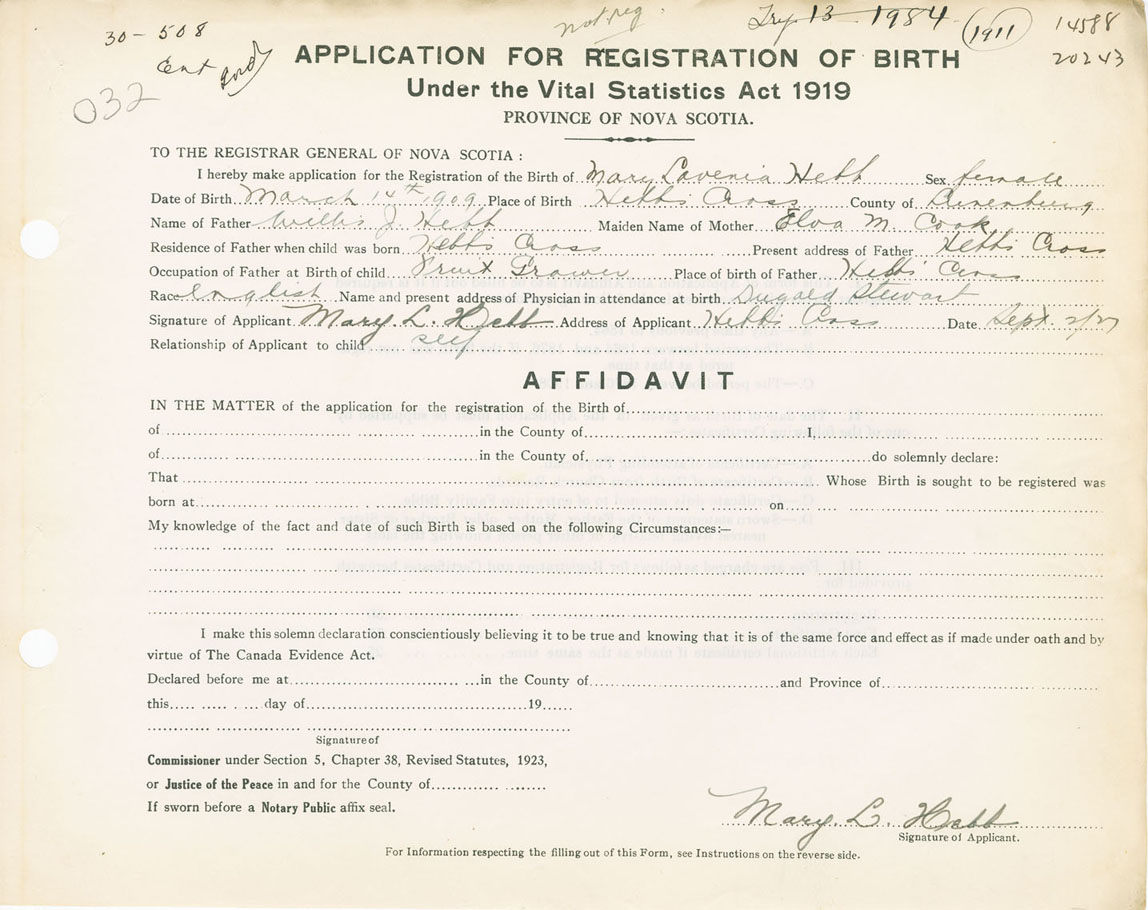 30-508
not reg.
13 1984 (1911) 14588
20243
Ent
032
APPLICATION FOR REGISTRATION OF BIRTH
Under the Vital Statistics Act 1919
PROVINCE OF NOVA SCOTIA.
TO THE REGISTRAR GENERAL OF NOVA SCOTIA :
I hereby make application for the Registration of the Birth of Mary Lavenia Hebb Sex female
Date of Birth March 14th 1909 Place of Birth Hebbs Cross County of Lunenburg
Name of Father Willis J. Hebb Maiden Name of Mother Elva M. Cook
Residence of Father when child was born Hebbs Cross Present address of Father Hebbs Cross
Occupation of Father at Birth of child Fruit Grower Place of birth of Father Hebbs Cross
Race English Name and present address of Physician in attendance at birth Dugald Stewart
Signature of Applicant Mary L. Hebb Address of Applicant Hebbs Cross Date Sept. 2/27
Relationship of Applicant to child self
AFFIDAVIT
IN THE MATTER of the application for the registration of the Birth of
of in the County of I,
of in the County of do solemnly declare:
That Whose Birth is sought to be registered was
born at on
My knowledge of the fact and date of such Birth is based on the following Circumstances:—
I make this solemn declaration conscientiously believing it to be true and knowing that it is of the same force and effect as if made under oath and by
virtue of The Canada Evidence Act.
Declared before me at in the County of and Province of
this day of 19
Signature of
Commissioner under Section 5, Chapter 38, Revised Statutes, 1923,
or Justice of the Peace in and for the County of
If sworn before a Notary Public affix seal.
Mary L. Hebb
Signature of Applicant.
For Information respecting the filling out of this Form, see Instructions on the reverse side.